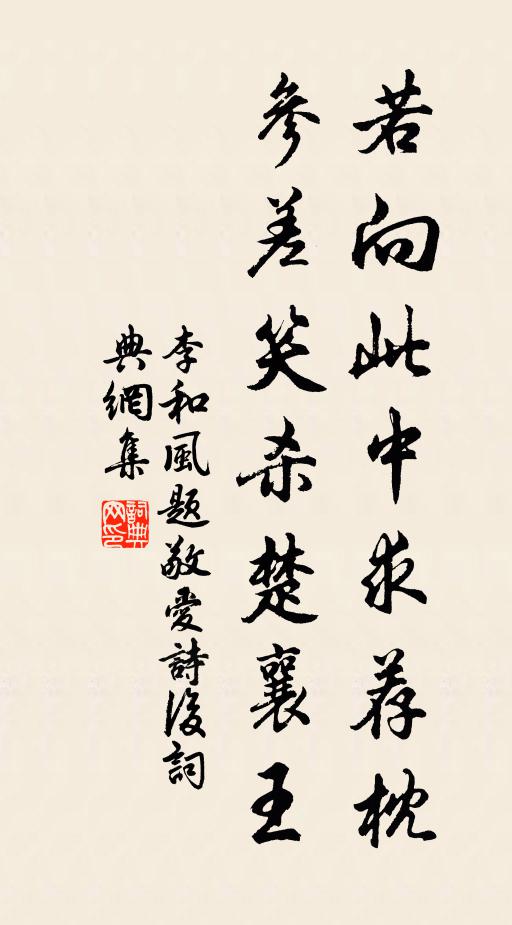 若向此中求荐枕
參差笑杀楚襄王
李和風題敬愛詩後詞
典網集
詞典
网印